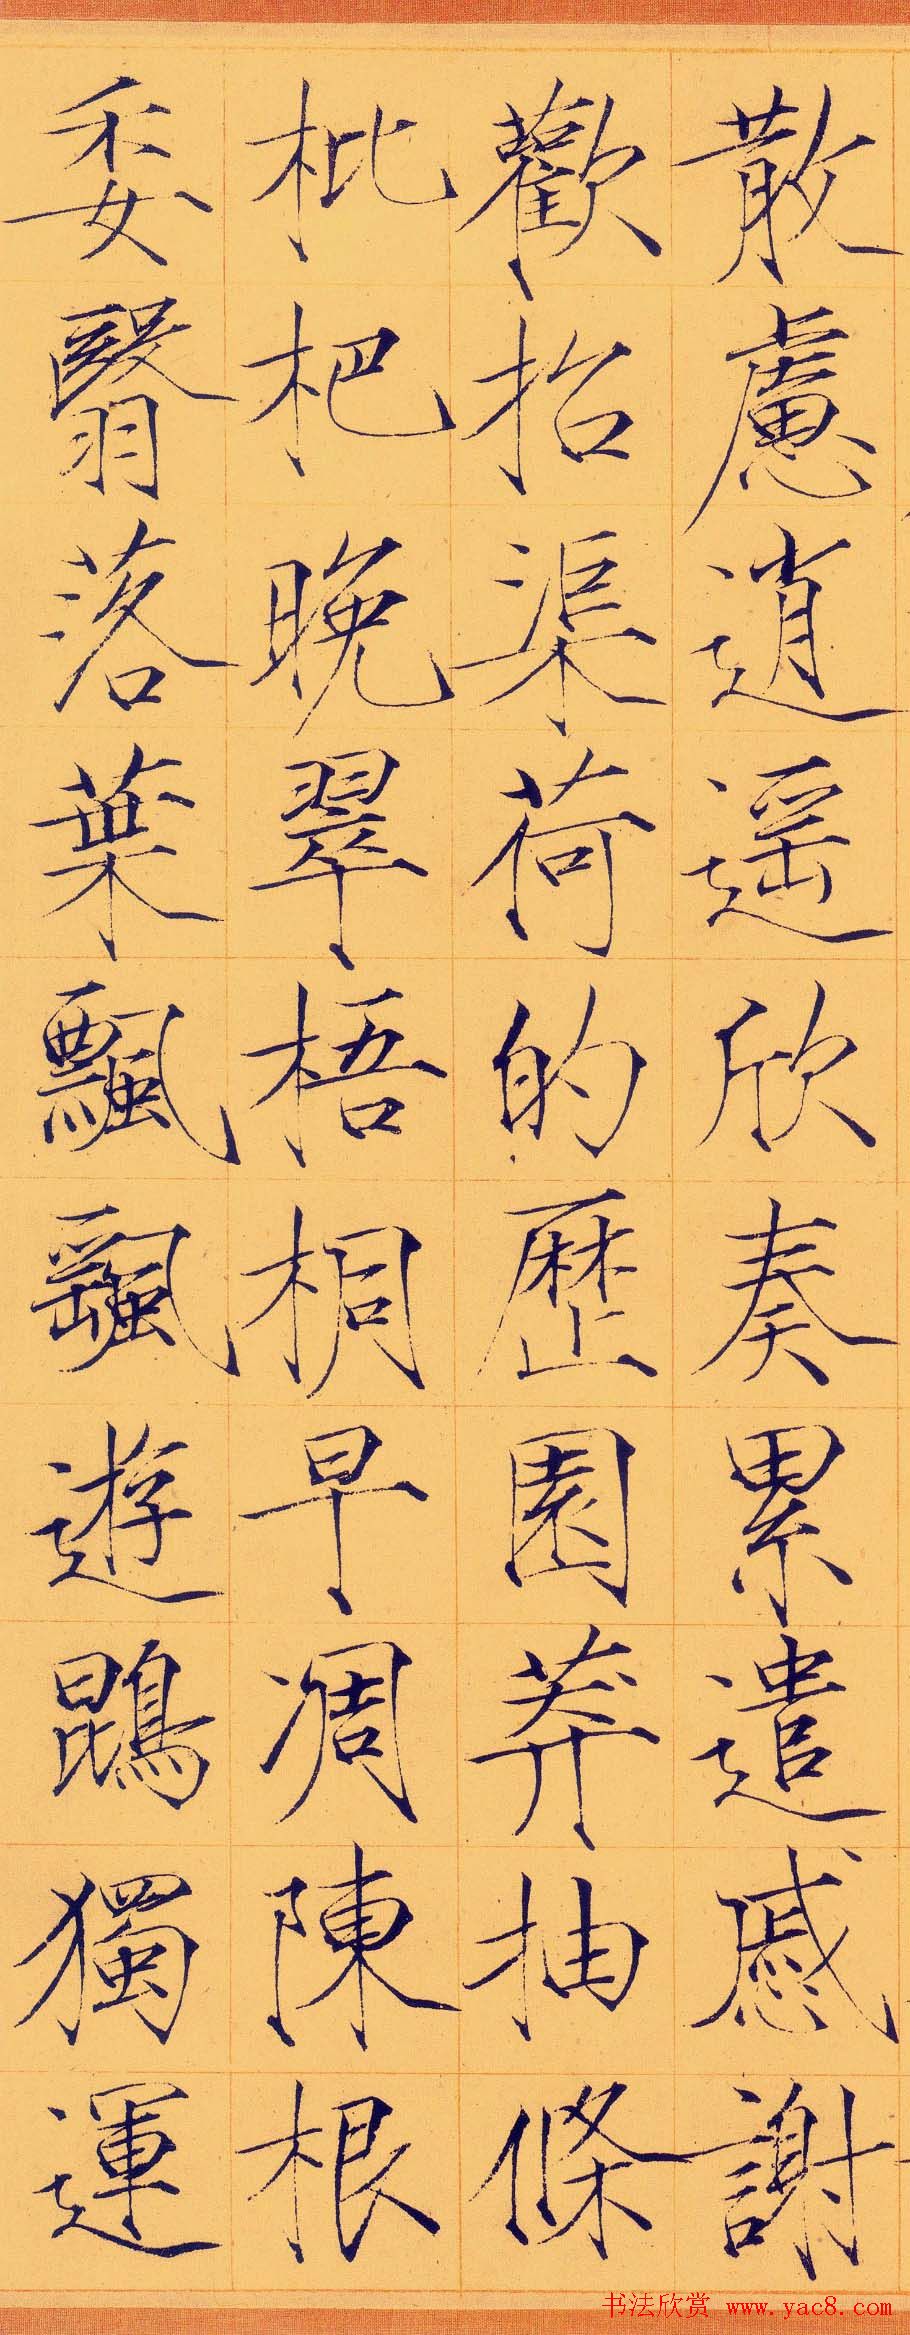 散慮逍遥欣奏累遣慼謝
歡招渠荷的歷園莽抽條
枇杷晚翠梧桐早凋陳根
委翳落葉飄颻遊鵾獨運
书法欣赏 www.yac8.com